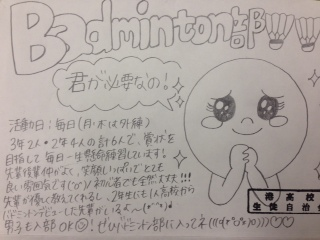 Badminton部
君が必要なの！
活動日：毎日(月・木は外練)
3年2人・2年4人の計6人で、賞状を
目指して毎日一生懸命練習しています。
先輩後輩仲がよく、笑顔いっぱいでとても
良い雰囲気です(^o^)/初心者でも全然大丈夫!!!
先輩が優しく教えてくれるし、2年生にも高校から
バドミントンデビューした先輩がいるよ〜
男子も入部OK ぜひバドミントン部に入ってネ
港高校
生徒自治会